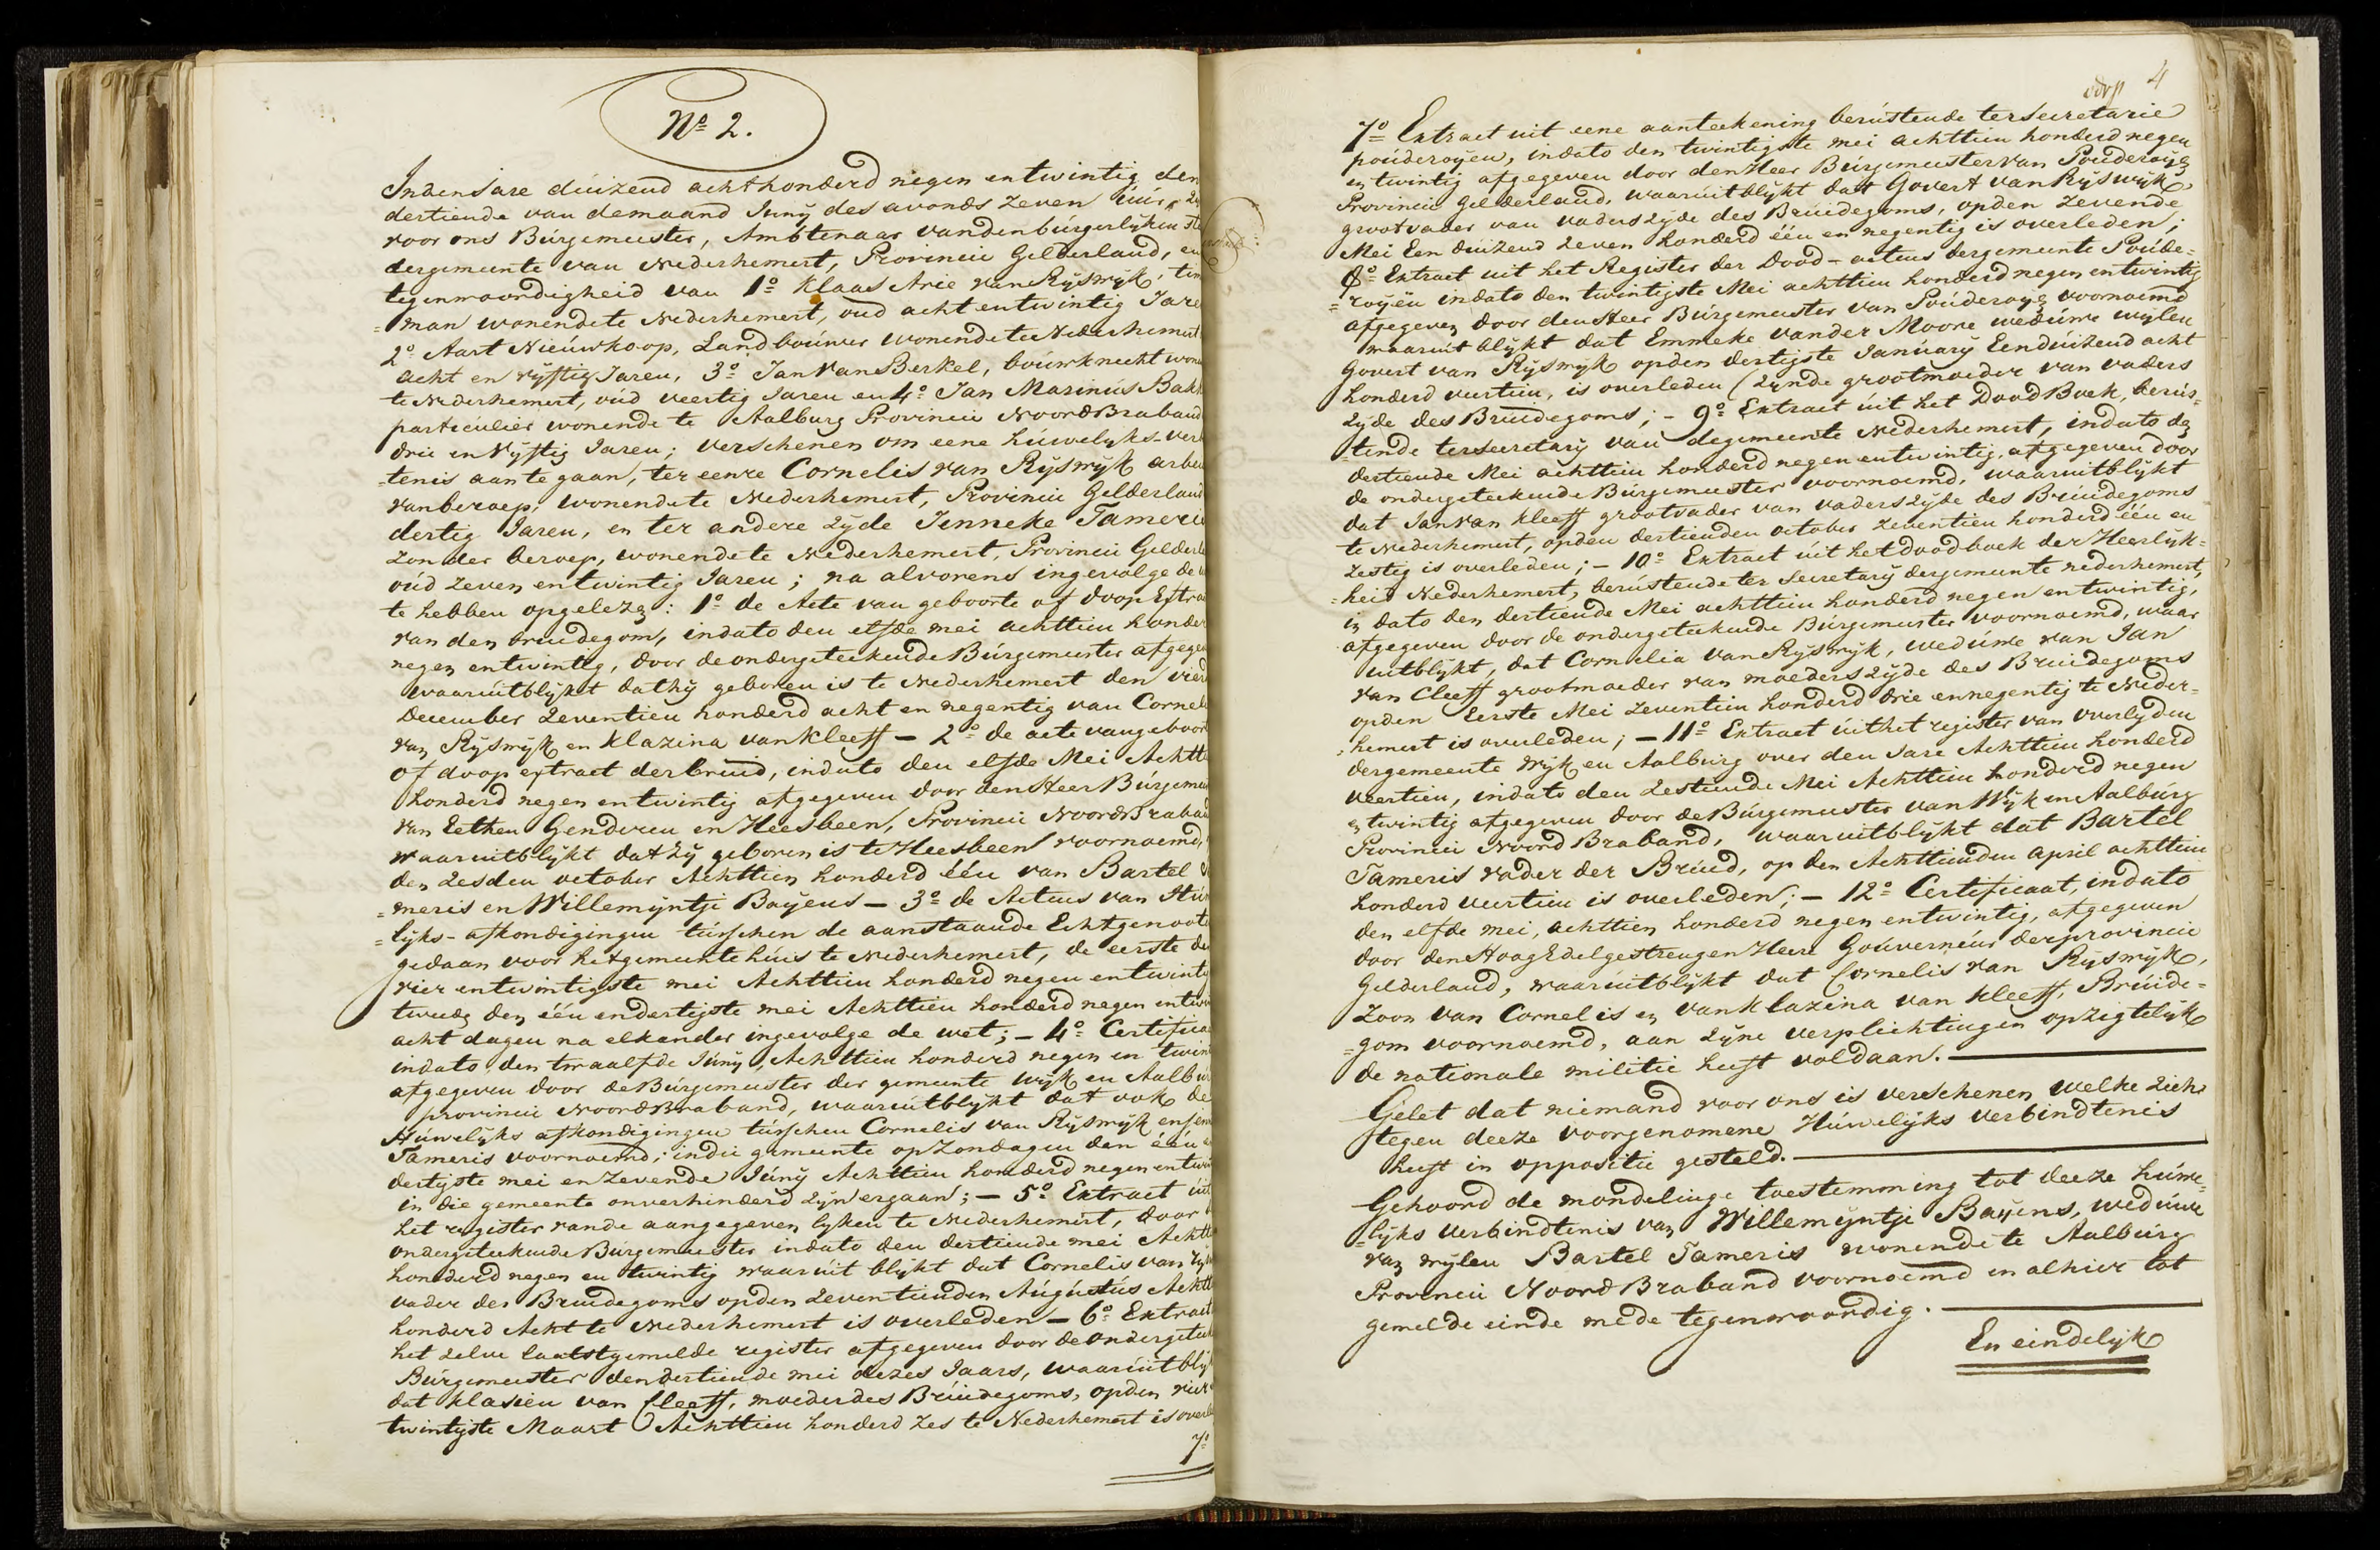 Nº 2.
In den Jare duizend achthonderd negen en twintig den
dertiende van de maand Junÿ des avonds zeven úúr,
voor ons Búrgemeester, Ambtenaar van den búrgerlÿken
der gemeente van Nederhemert, Provincie Gelderland, en
tegenwoordigheid van 1º Klaas Arie van Rÿswÿk, tim
=man wonende te Nederhemert, oud acht en twintig Jare
2º Aart Nieúwkoop, Landboúwer wonende te Nederhemert
acht en vÿftig Jaren, 3º Jan van Berkel, boúwknecht wone
te Nederhemert, oúd veertig Jaren en 4º Jan Marinús Bakk
particúlier wonende te Aalburg Provincie Noord Braband
drie en vÿftig Jaren; verschenen om eene húwelyks-verb
=tenis aan te gaan, ter eenre Cornelis van Rÿswÿk arbei
van beroep, wonende te Nederhemert, Provincie Gelderland
dertig Jaren, en ter andere zÿde Jenneke Tameris
zonder beroep, wonende te Nederhemert, Provincie Gelderla
oúd zeven en twintig Jaren; na alvorens ingevolge de w
te hebben opgelezen: 1º de Acte van geboorte of doop Extra
van den brúidegom, in dato den elfde mei achttien honder
negen en twintig, door de ondergeteekende Búrgemeester afgege
waarúit blÿkt dat hÿ geboren is te Nederhemert den vier
December zeventien honderd acht en negentig van Cornel
van Rÿswÿk en Klazina van Kleeff – 2º de acte van geboort
of doop extract der brúid, in dato den elfde Mei Achtti
honderd negen en twintig afgegeven door den Heer Búrgemee
van Eethen Genderen en Heesbeen, Provincie Noord Braban
waar uit blÿkt dat zÿ geboren is te Heesbeen voornoemd,
den zesden october Achttien honderd één van Bartel
=meris en Willemÿntje Baÿens – 3º de Actens van Húw
=lÿks-afkondigingen túrschen de aanstaande Echtgenoote
gedaan voor het gemeente húis te Nederhemert, de eerste de
vier en twintigste mei Achttien honderd negen en twintig
tweede den één en dertigste mei Achttien honderd negen en twi
acht dagen na elkander ingevolge de wet; – 4º Certifica
in dato den twaalfde Júnÿ Achttien honderd negen en twin
afgegeven door de Búrgemeester der gemeente wÿk en Aalbúr
provincie Noord Braband, waarúit blÿkt dat ook de
Húwelÿks afkondigingen túrschen Cornelis van Rÿswÿk en Jenn
Tameris voornoemd; in die gemeente op Zondagen den één e
dertigste mei en Zevende Júnÿ Achttien honderd negen en twi
in die gemeente onverhinderd zÿn ergaan; – 5º Extract úit
het register van de aangegeven lÿken te Nederhemert, door
ondergeteekende Búrgemeester in dato den dertiende mei Achtt
honderd negen en twintig waar uit blÿkt dat Cornelis van
vader des Brúidegoms op den zeventienden Aúgústús Achtt
honderd Acht te Nederhemert is overleden – 6º Extract
het zelve laatstgemelde register afgegeven door de ondergetee
Burgemeester den dertiende mei dezes Jaars, waarúit blÿ
dat Klasien van Cleeff, moeder des Brúidegoms, op den vier
twintigste Maart Achttien honderd zes te Nederhemert is overl
7º
4
7º Extract uit eene aanteekening berústende ter secretarie
poúderoÿen, in dato den twintigste mei achttien honderd negen
en twintig afgegeven door den Heer Búrgemeester van Poúderoÿen
Provincie Gelderland, waarúit blÿkt dat Govert van Rÿswÿk,
grootvader van vaders zÿde des Brúidegoms, op den zevende
Mei Een duizend zeven honderd één en negentig is overleden;
8º Extract uit het Register der Dood-actens der gemeente Poúde=
=roÿen in dato den twintigste Mei achttien honderd negen en twintig
afgegeven door den Heer Búrgemeester van Poúderoÿen voornoemd
waarúit blÿkt dat Emmeke van der Moore wedúwe wÿlen
Govert van Rÿswÿk op den dertigste Janúarÿ Een duizend acht
honderd veertien, is overleden (zÿnde grootmoeder van vaders
zÿde des Brúidegoms; – 9º Extract úit het Dood Boek, berús=
tende ter secretarÿ van de gemeente Nederhemert, in dato den
dertiende Mei achttien honderd negen en twintig, afgegeven door
de ondergeteekende Búrgemeester voornoemd, waaruit blÿkt
dat Jan van Kleeff grootvader van vaders zÿde des Brúidegoms
te Nederhemert, op den dertienden october zeventien honderd één en
zestig is overleden; – 10º Extract uit het doodboek der Heerlÿk=
=heid Nederhemert, berústende ter Secretarÿ der gemeente nederhemert,
in dato den dertiende Mei achttien honderd negen en twintig,
afgegeven door de ondergeteekende Búrgemeester voornoemd, waar
uit blÿkt, dat Cornelia van Rÿswÿk, wedúwe van Jan
van Cleeff grootmoeder van moeders zÿde des Brúidegoms
op den Eerste Mei zeventien honderd drie en negentig te Neder=
hemert is overleden; – 11º Extract úit het register van overlÿden
der gemeente wÿk en Aalburg over den Jare Achttien honderd
veertien, in dato den zestiende Mei Achttien honderd negen
en twintig afgegeven door de Búrgemeester van Wÿk en Aalbúrg
Provincie Noord Braband, waar uit blÿkt dat Bartel
Tameris vader der Brúid, op den Achttienden April achttien
honderd veertien is overleden; – 12º Certificaat, in dato
den elfde mei, achttien honderd negen en twintig, afgegeven
door den Hoog Edelgestrengen Heere Goúvernéúr der provincie
Gelderland, waarúit blÿkt dat Cornelis van Rÿswÿk,
Zoon van Cornelis en van Klazina van Kleeff, Brúide=
=gom voornoemd, aan zÿne verplichtingen opzigtelÿk
de nationale militie heeft voldaan.
Gelet dat niemand voor ons is verschenen welke zich
tegen deeze voorgenomene Húwelÿks verbindtenis
heeft in oppositie gesteld.
Gehoord de mondelinge toestemming tot deeze húwe=
=lÿks verbindtenis van Willemÿntje Baÿens, wedúwe
van wÿlen Bartel Tameris wonende te Aalbúrg
Provincie Noord Braband voornoemd en alhier tot
gemelde einde mede tegenwoordig.
En eindelÿk